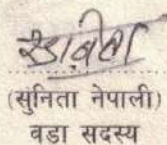 (सुनिता नेपाली)
वडा सदस्य